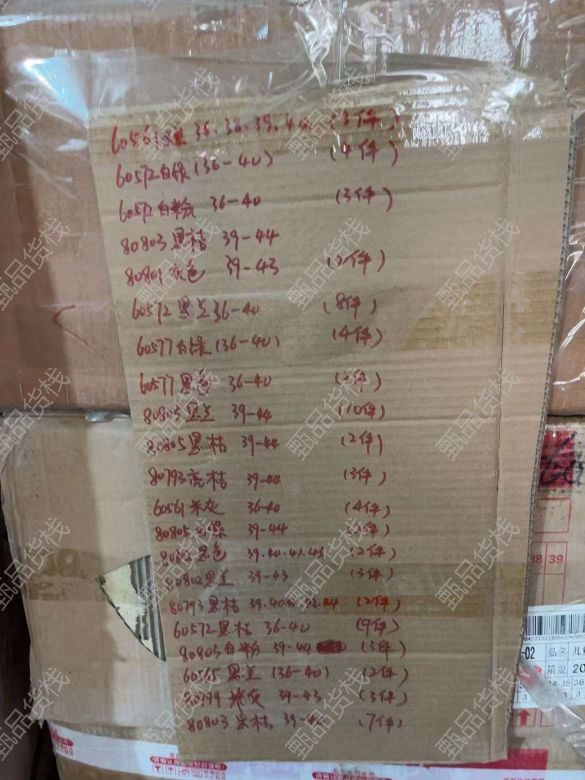 60561 36.38.39.40 (3件)
60572白绿(36-40) (4件)
60572白粉 36-40 (3件)
80803黑桔 39-44
80801灰色 39-43 (2件)
60572黑兰36-40 (8件)
60577白绿(36-40) (4件)
60577黑色 36-40
80803黑兰 39-44 (10件)
80805黑桔 39-44 (2件)
80793 39-44 (3件)
60561米灰 36-40 (4件)
80805 39-44
80802黑色 39.40.41.43 (2件)
80802黑兰 39-43 (3件)
80793黑桔 (2件)
60572黑桔 36-40 (9件)
80803白粉 39-44 (3件)
60565黑兰 (36-40) (2件)
米灰 39-43 (3件)
80803黑桔 (7件)
甄品货栈
38 39
-02 品名
箱规